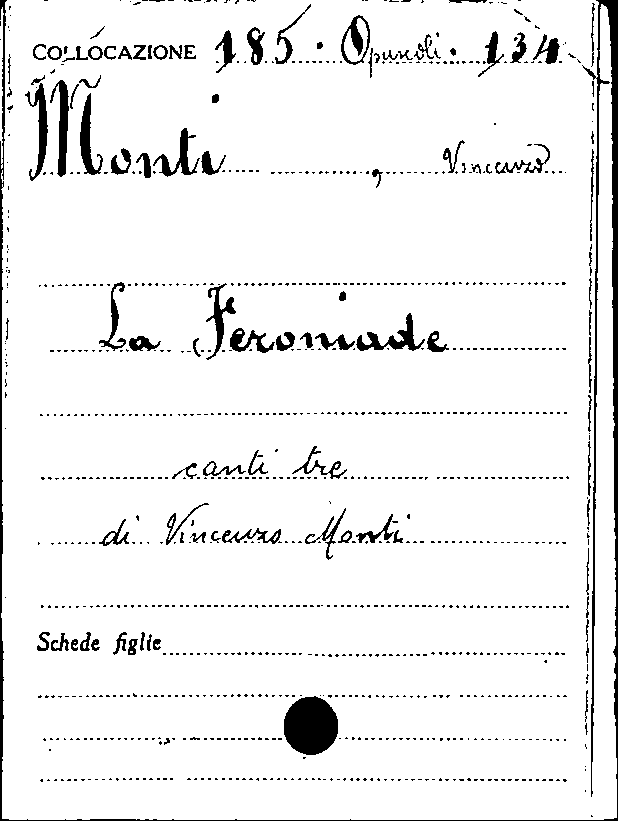 COLLOCAZIONE 185 · Opuscoli · 134
Monti , Vincenzo
La Feroniade
canti tre
di Vincenzo Monti
Schede figlie